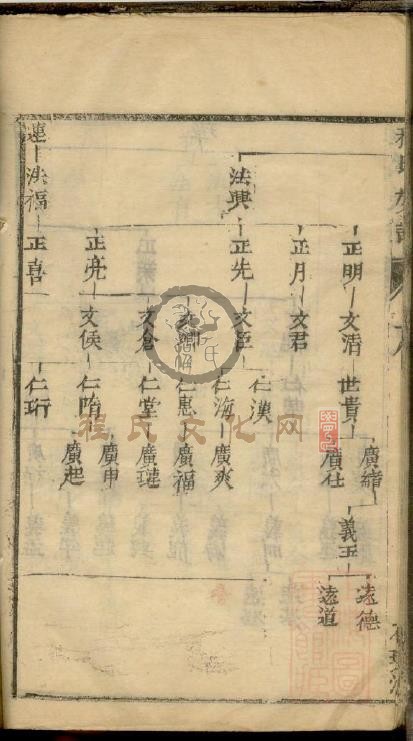 程氏宗譜
正明 文清 世貴 廣緒
廣仕 義玉 遠德
遠道
正月 文君
法興 正先 文臣 仁漢
仁海 廣爽
文卿 仁惠 廣福
文倉 仁堂 廣璉
正亮 文侯 仁隋 廣申
廣起
連 洪福 正喜 仁珩
程氏文化网